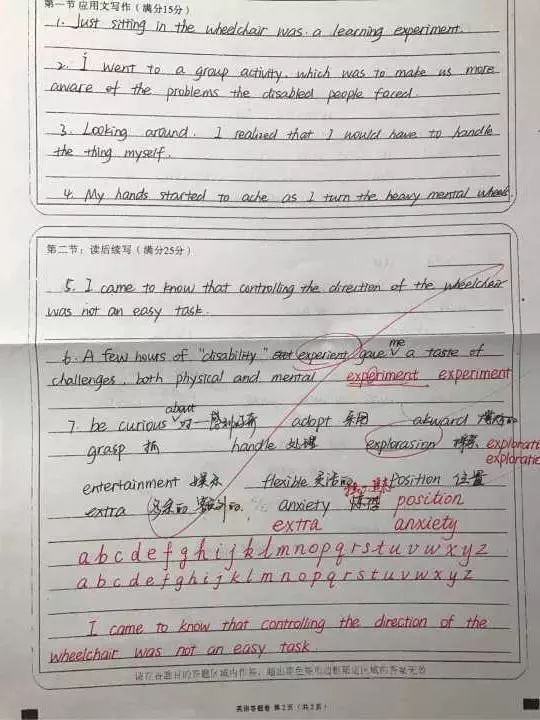 第一节 应用文写作(满分15分)
1. Just sitting in the wheelchair was a learning experiment.
2. I went to a group activity. which was to make us more
aware of the problems the disabled people faced.
3. Looking around. I realized that I would have to handle
the thing myself.
4. My hands started to ache as I turn the heavy mental wheels.
第二节:读后续写(满分25分)
5. I came to know that controlling the direction of the wheelchair
was not an easy task.
me
6. A few hours of "disability" experient gave a taste of
challenges. both physical and mental experiment experiment
about
7. be curious 对一感到好奇 adopt 采用 akward
grasp 抓 handle 处理 explorasion 探索
entertainment 娱乐 flexible 灵活的 position 位置
extra 额外的 anxiety position
extra anxiety
a b c d e f g h i j k l m n o p q r s t u v w x y z
a b c d e f g h i j k l m n o p q r s t u v w x y z
I came to know that controlling the direction of the
wheelchair was not an easy task.
请在各题目的答题区域内作答,超出黑色矩形边框限定区域的答案无效
英语答题卷 第2页(共2页)